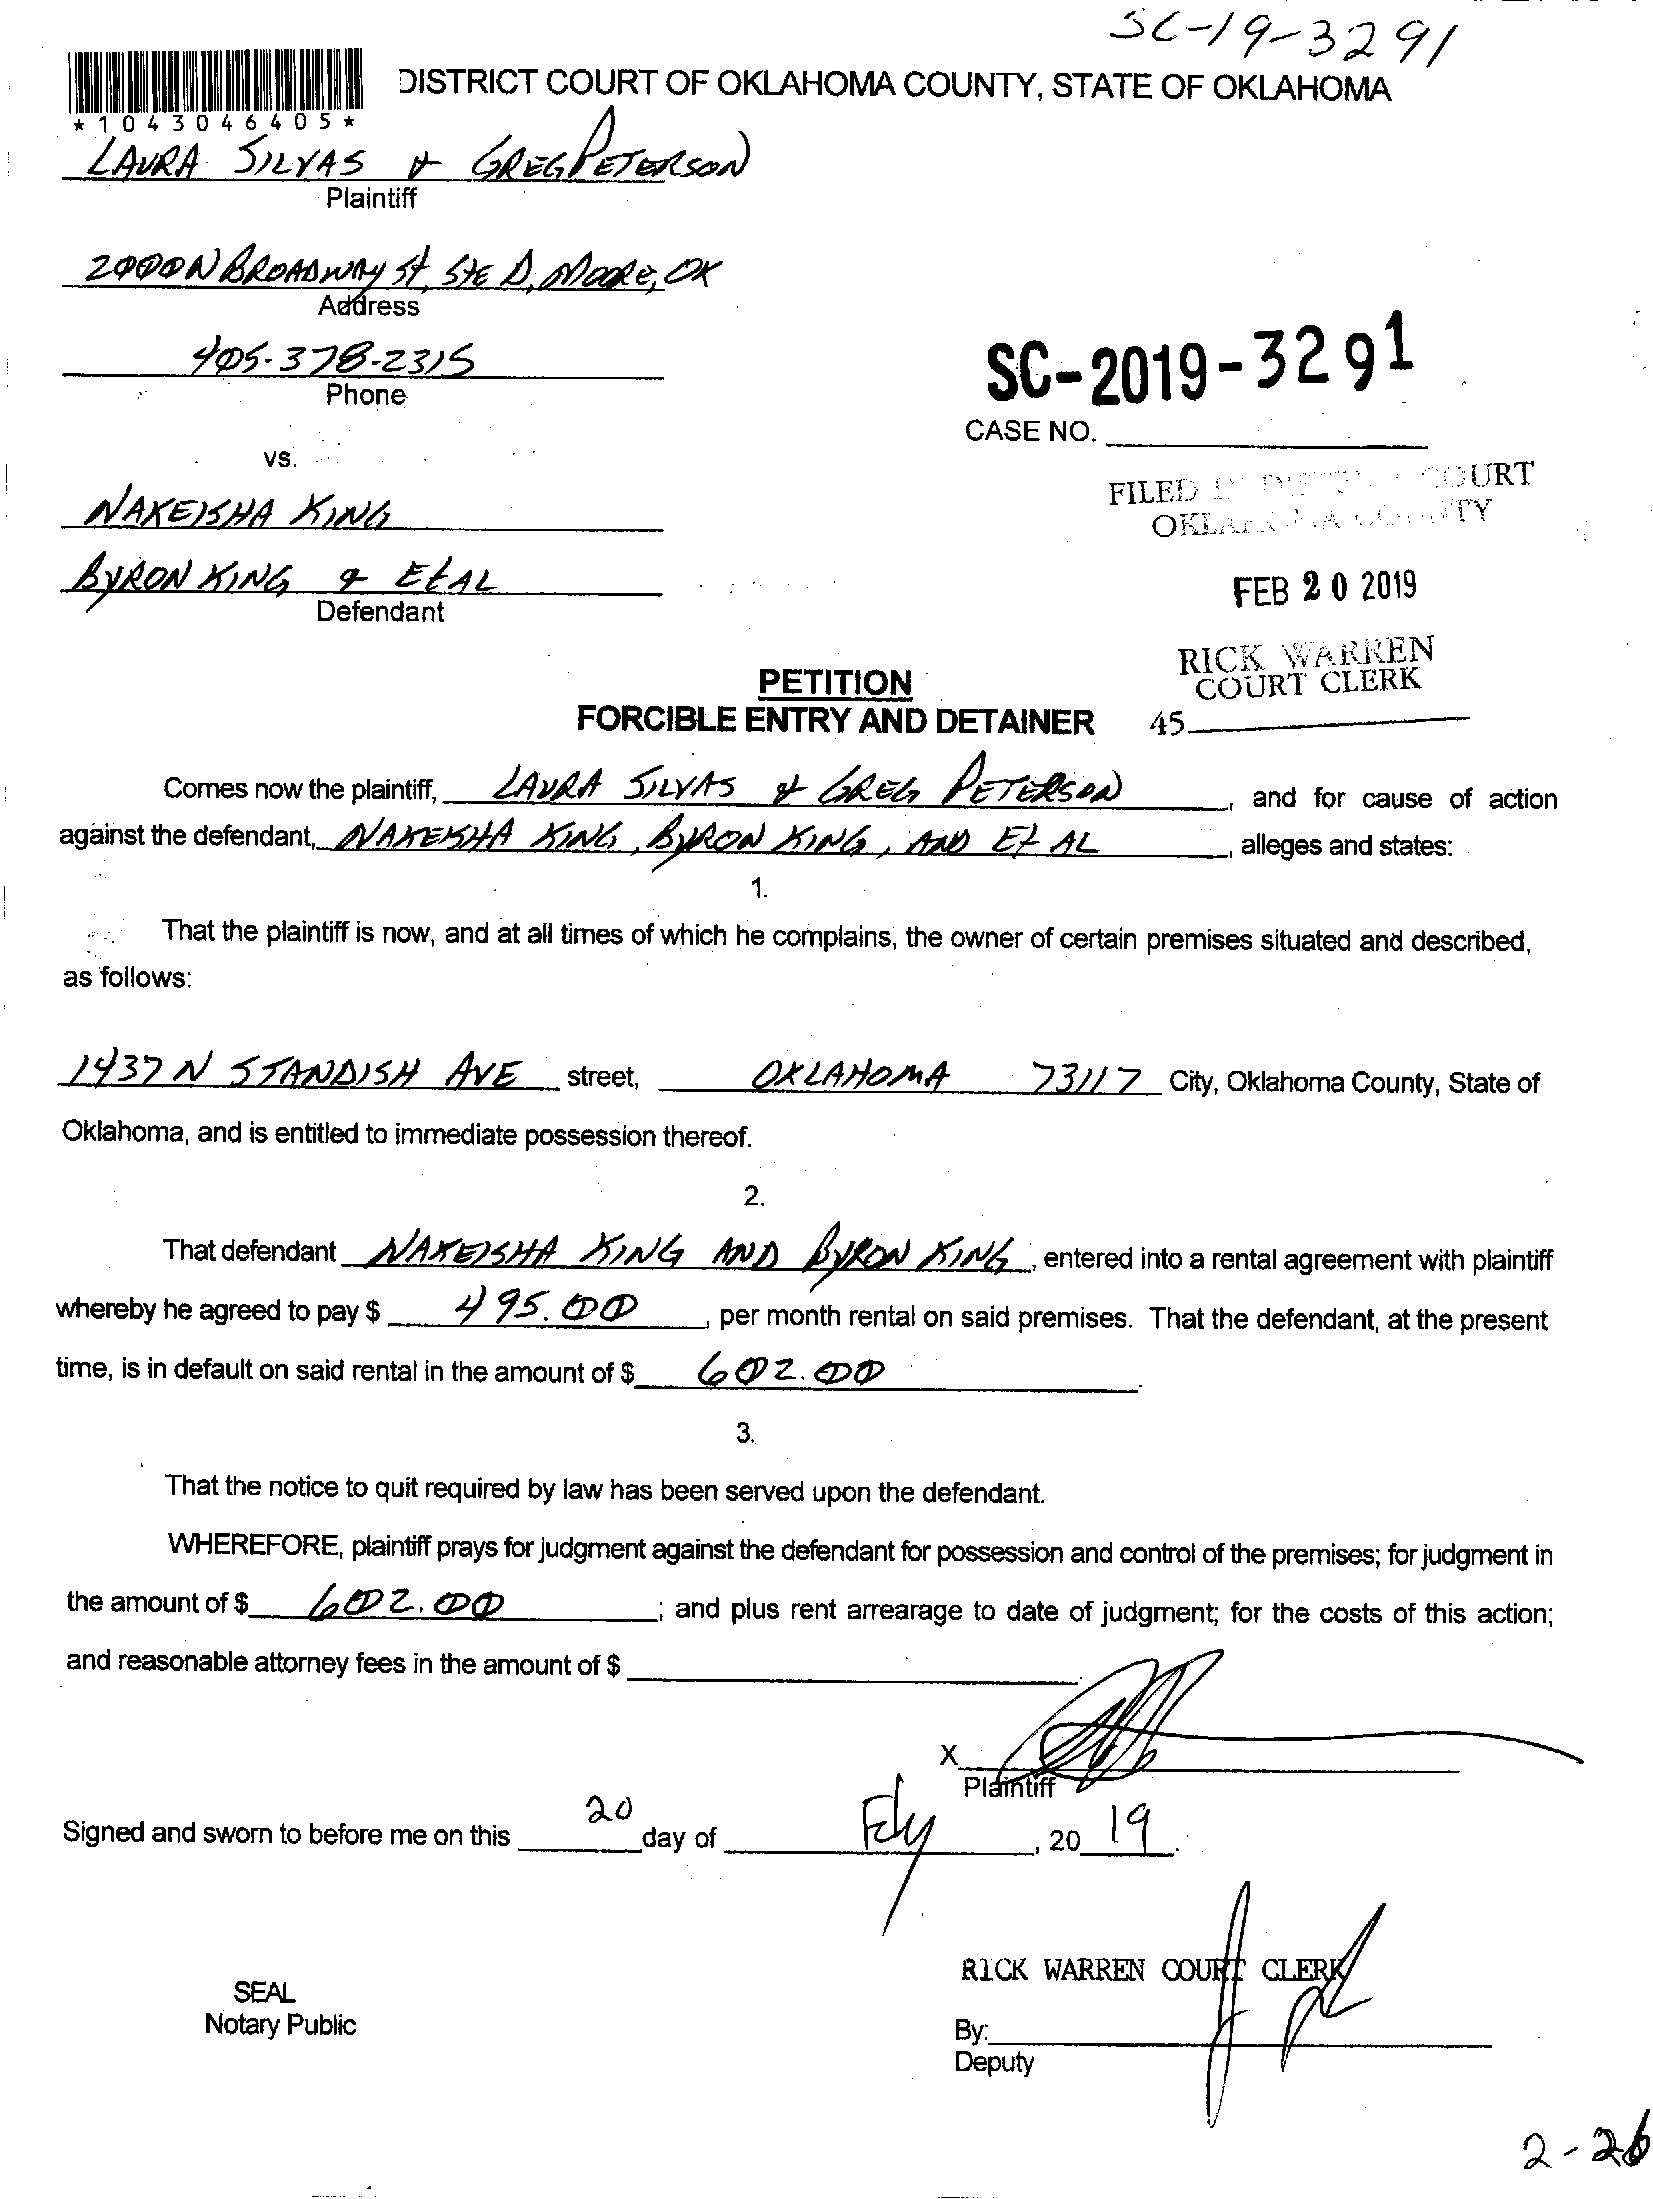 SC-19-3291
DISTRICT COURT OF OKLAHOMA COUNTY, STATE OF OKLAHOMA
*1043046405*
LAURA SILVAS & GREG PETERSON
Plaintiff
2000 N BROADWAY St, StE D, MOORE, OK
Address
405-378-2315
Phone
SC-2019-3291
CASE NO.
vs.
FILED IN DISTRICT COURT
OKLAHOMA COUNTY
NAKEISHA KING
BYRON KING & Et AL
Defendant
FEB 20 2019
RICK WARREN
COURT CLERK
45
PETITION
FORCIBLE ENTRY AND DETAINER
Comes now the plaintiff, LAURA SILVAS & GREG PETERSON, and for cause of action
against the defendant, NAKEISHA KING, BYRON KING, AND Et AL, alleges and states:
1.
That the plaintiff is now, and at all times of which he complains, the owner of certain premises situated and described,
as follows:
1437 N STANDISH AVE street, OKLAHOMA 73117 City, Oklahoma County, State of
Oklahoma, and is entitled to immediate possession thereof.
2.
That defendant NAKEISHA KING AND BYRON KING, entered into a rental agreement with plaintiff
whereby he agreed to pay $ 495.00, per month rental on said premises. That the defendant, at the present
time, is in default on said rental in the amount of $ 602.00.
3.
That the notice to quit required by law has been served upon the defendant.
WHEREFORE, plaintiff prays for judgment against the defendant for possession and control of the premises; for judgment in
the amount of $ 602.00; and plus rent arrearage to date of judgment; for the costs of this action;
and reasonable attorney fees in the amount of $
X
Plaintiff
Signed and sworn to before me on this 20 day of , 20 19.
RICK WARREN COURT CLERK
SEAL
Notary Public
By:
Deputy
2-26